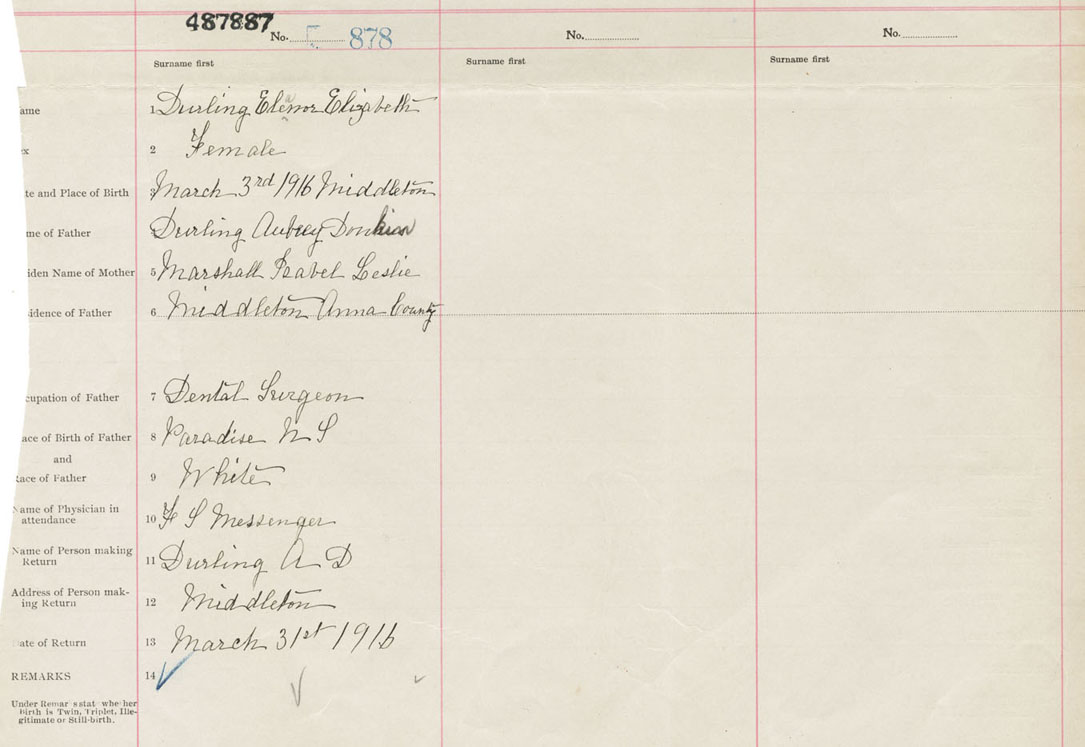 487887
No. 878
No.
No.
Surname first
Surname first
Surname first
ame 1 Durling Elenor Elizabeth
x 2 Female
te and Place of Birth 3 March 3rd 1916 Middleton
me of Father Durling Aubrey Donkin
iden Name of Mother 5 Marshall Isabel Leslie
idence of Father 6 Middleton Anna County
cupation of Father 7 Dental Surgeon
ace of Birth of Father 8 Paradise N S
and
Race of Father 9 White
Name of Physician in
attendance 10 F S Messenger
Name of Person making
Return 11 Durling A D
Address of Person mak-
ing Return 12 Middleton
ate of Return 13 March 31st 1916
REMARKS 14
Under Remar s stat whe her
birth is Twin, Triplet, Ille-
gitimate or Still-birth.